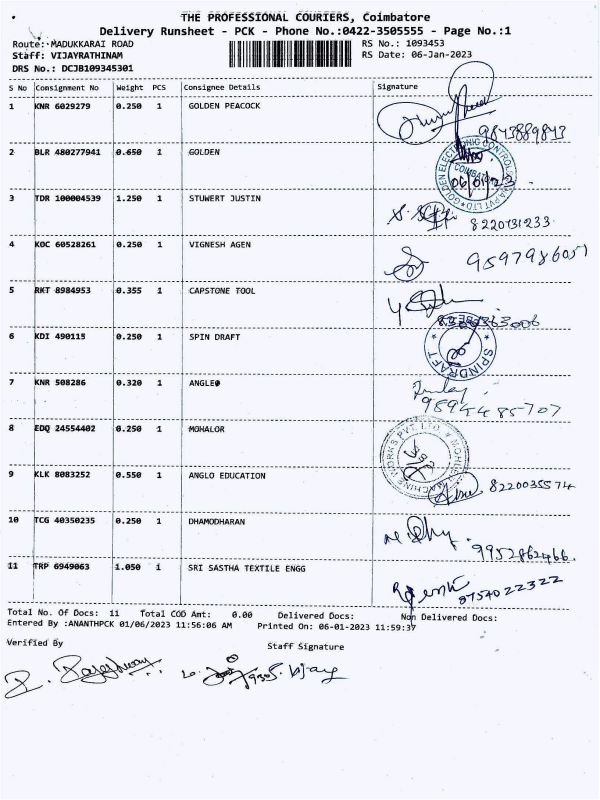 THE PROFESSIONAL COURIERS, Coimbatore
Delivery Runsheet - PCK - Phone No.:0422-3505555 - Page No.:1
Route: MADUKKARAI ROAD RS No.: 1093453
Staff: VIJAYRATHINAM RS Date: 06-Jan-2023
DRS No.: DCJB109345301
S No Consignment No Weight PCS Consignee Details Signature
1 KNR 6029279 0.250 1 GOLDEN PEACOCK
9843889843
2 BLR 480277941 0.650 1 GOLDEN
06/01/23
3 TDR 100004539 1.250 1 STUWERT JUSTIN
8220731233
4 KOC 60528261 0.250 1 VIGNESH AGEN
9597986051
5 RKT 8984953 0.355 1 CAPSTONE TOOL
6 KDI 490115 0.250 1 SPIN DRAFT
SPINDRAFT
7 KNR 508286 0.320 1 ANGLE0
9894485707
8 EDQ 24554402 0.250 1 MOHALOR
9 KLK 8083252 0.550 1 ANGLO EDUCATION
8220035574
10 TCG 40350235 0.250 1 DHAMODHARAN
9952862466.
11 TRP 6949063 1.050 1 SRI SASTHA TEXTILE ENGG
8754022322
Total No. Of Docs: 11 Total COD Amt: 0.00 Delivered Docs: Non Delivered Docs:
Entered By :ANANTHPCK 01/06/2023 11:56:06 AM Printed On: 06-01-2023 11:59:37
Verified By Staff Signature